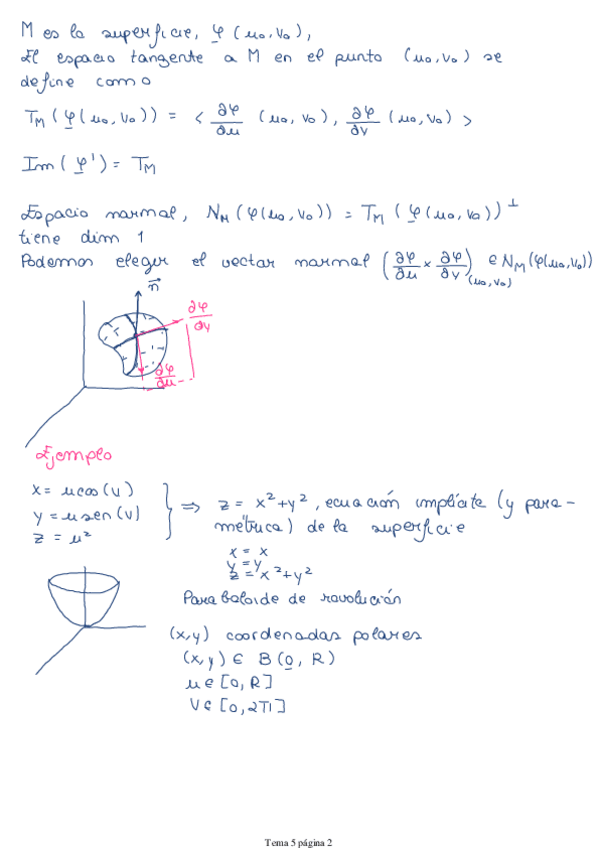 M es la superficie, φ (u₀, v₀),
El espacio tangente a M en el punto (u₀, v₀) se
define como
T_M (φ(u₀, v₀)) = < ∂φ/∂u (u₀, v₀), ∂φ/∂v (u₀, v₀) >
Im (φ') = T_M
Espacio normal, N_M (φ(u₀, v₀)) = T_M (φ(u₀, v₀))^⊥
tiene dim 1
Podemos eleger el vector normal (∂φ/∂u × ∂φ/∂v)_(u₀, v₀) ∈ N_M (φ(u₀, v₀))
n⃗
∂φ/∂v
∂φ/∂u
Ejemplo
x = u cos (v)
y = u sen (v)
z = u²
⇒ z = x² + y², ecuación implícita (y para-
métrica) de la superficie
x = x
y = y
z = x² + y²
Paraboloide de revolución
(x, y) coordenadas polares
(x, y) ∈ B (0, R)
u ∈ [0, R]
v ∈ [0, 2π]
Tema 5 página 2